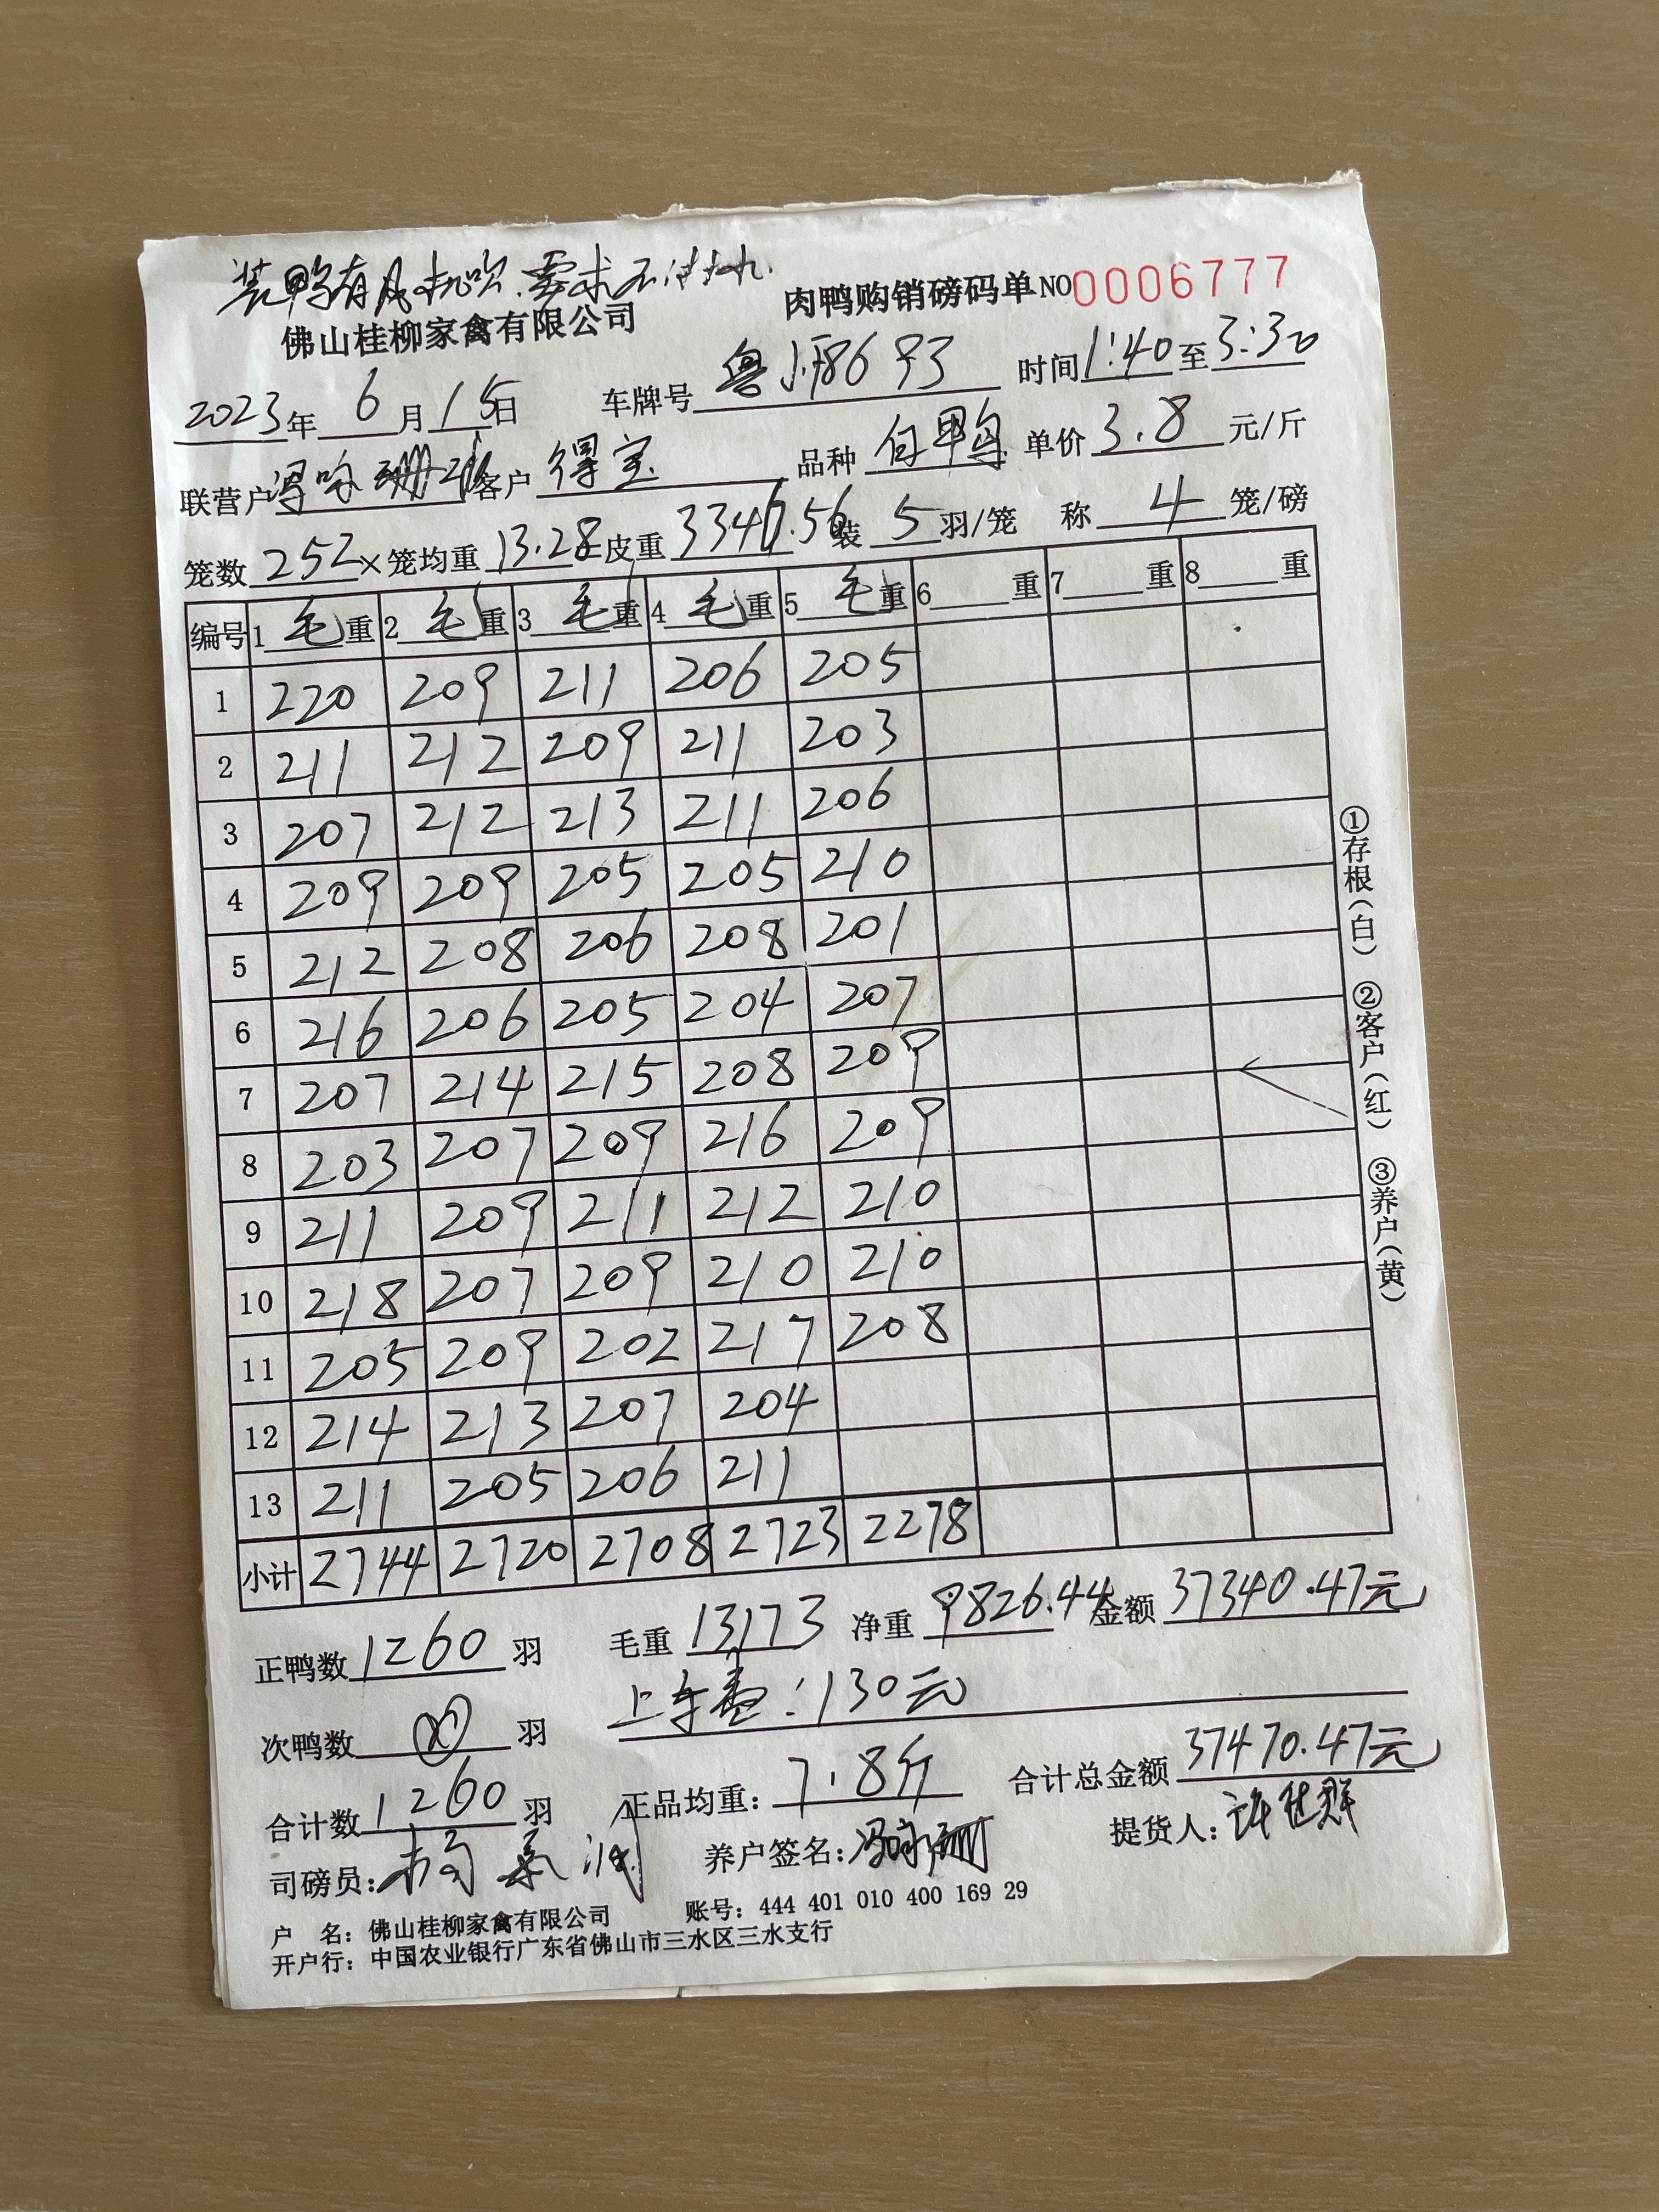 装鸭有风机吹.要求不
佛山桂柳家禽有限公司 肉鸭购销磅码单NO0006777
2023年 6 月 15日 车牌号 粤 8693 时间 1:40 至 3:30
联营户 客户 得宝 品种 白鸭 单价 3.8 元/斤
笼数 252 × 笼均重 13.28 皮重 3346.56 装 5 羽/笼 称 4 笼/磅
编号 1 毛 重 2 毛 重 3 毛 重 4 毛 重 5 毛 重 6 重 7 重 8 重
1 220 209 211 206 205
2 211 212 209 211 203
3 207 212 213 211 206
4 209 209 205 205 210
5 212 208 206 208 201
6 216 206 205 204 207
7 207 214 215 208 209
8 203 207 209 216 209
9 211 209 211 212 210
10 218 207 209 210 210
11 205 209 202 217 208
12 214 213 207 204
13 211 205 206 211
小计 2744 2720 2708 2723 2278
正鸭数 1260 羽 毛重 13173 净重 9826.44 金额 37340.47元
次鸭数 羽 上车费:130元
合计数 1260 羽 正品均重: 7.8斤 合计总金额 37470.47元
司磅员: 杨 养户签名: 冯咏珊 提货人: 许 群
户 名: 佛山桂柳家禽有限公司 账号: 444 401 010 400 169 29
开户行: 中国农业银行广东省佛山市三水区三水支行
①存根(白) ②客户(红) ③养户(黄)